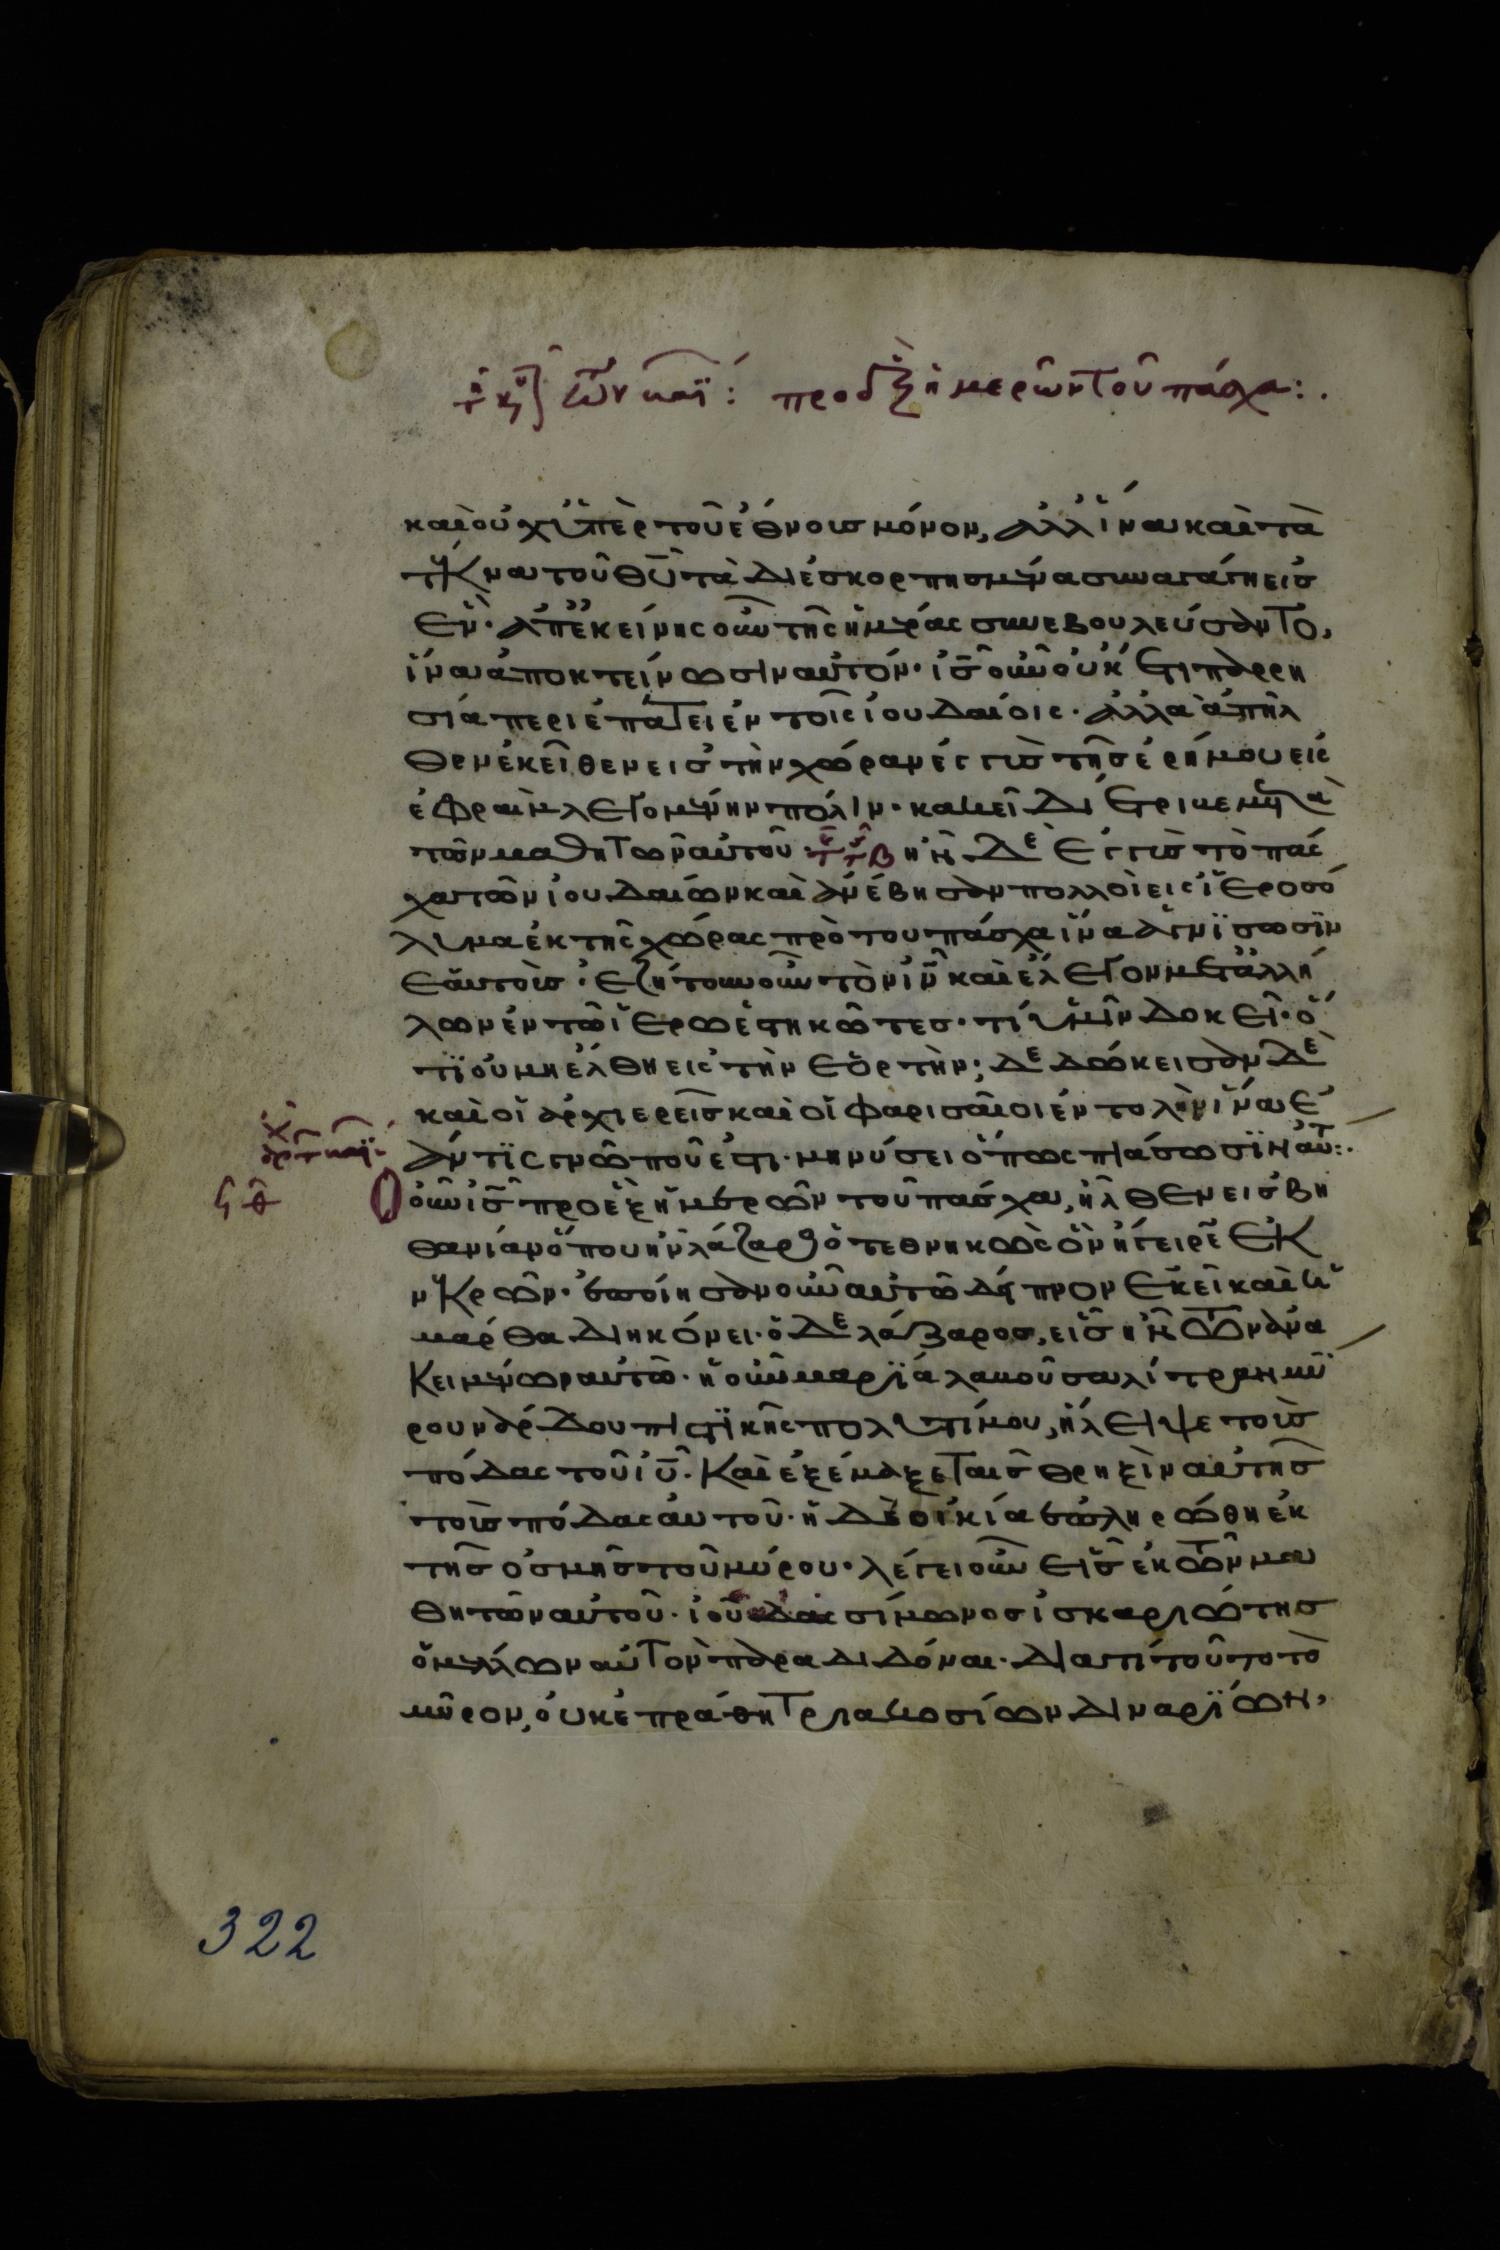 πρὸ ἓξ ἡμερῶν τοῦ πάσχα:.
καὶ οὐχ ὑπὲρ τοῦ ἔθνους μόνον, ἀλλ' ἵνα καὶ τὰ
τέκνα τοῦ θ̅υ̅ τὰ διεσκορπησμένα συναγάγη εἰς
ἕν· ἀπ' ἐκείνης οὖν τῆς ἡμέρας συνεβουλεύσαντο,
ἵνα ἀποκτείνωσιν αὐτόν· ἰ̅ς̅ οὖν οὐκ έτι παρρη
σία περιεπάτει ἐν τοῖς ἰουδαίοις· ἀλλὰ ἀπῆλ
θεν ἐκεῖθεν εἰς τὴν χώραν ἐγγὺς τῆς ἐρήμου εἰς
ἐφραὶμ λεγομένην πόλιν· κακεῖ διέτριβε μετὰ
τῶν μαθητῶν αὐτοῦ ἦν δὲ ἐγγὺς τὸ πάσ
χα τῶν ἰουδαίων καὶ ἀνέβησαν πολλοὶ εἰς ἱεροσό
λυμα ἐκ τῆς χώρας πρὸ του πάσχα ἵνα ἁγνίσωσϊν
ἑαυτοὺς· ἐζήτουν οὖν τὸν ἰ̅ν̅ καὶ ἔλεγον μετ' ἀλλή
λων ἐν τῶ ἱερῶ ἑστηκῶτες· τί ὑμῖν δοκεῖ· ὅ
τϊ οὐ μη ἔλθη εἰς τὴν ἑορτὴν; δεδώκεισαν δὲ
καὶ οἱ ἀρχιερεῖς καὶ οἱ φαρισαῖοι ἐντολὴν ἵνα ἐ
άν τϊς γνῶ ποῦ ἐστι· μηνύσει ὅπως πιάσωσϊν αὐτ:.
Ὁ οὖν ἰ̅ς̅ πρὸ ἓξ ἡμερῶν τοῦ πάσχα, ἦλθεν εἰς βη
θανίαν ὅπου ἦν λάζαρος ὁ τεθνηκὼς ὃν ἤγειρε ἐκ
νεκρῶν· ἐποίησαν οὖν αὐτῶ δεῖπνον ἐκεῖ καὶ ἡ
μάρθα διηκόνει· ὁ δὲ λάζαρος, εἷς ἦν τῶν ἀνα
κειμένων αὐτῶ· ἡ οὖν μαρϊά λαβοῦσα λίτραν μύ
ρου νάρδου πιστϊκῆς πολυτίμου, ἤλειψε τοὺς
πόδας τοῦ ἰ̅υ̅· καὶ ἐξέμαξε ταῖς θρηξὶν αὐτῆς
τοὺς πόδας αὐτοῦ· ἡ δὲ οἰκία ἐπληρώθη ἐκ
τῆς ὀσμῆς τοῦ μύρου· λέγει οὖν εἷς ἐκ τῶν μα
θητῶν αὐτοῦ· ἰούδας σίμωνος ἰσκαριώτης
ὁ μέλλων αὐτὸν παραδιδόναι· διατί τοῦτο τὸ
μῦρον, οὐκ ἐπράθη τριακοσίων διναρϊων,
322